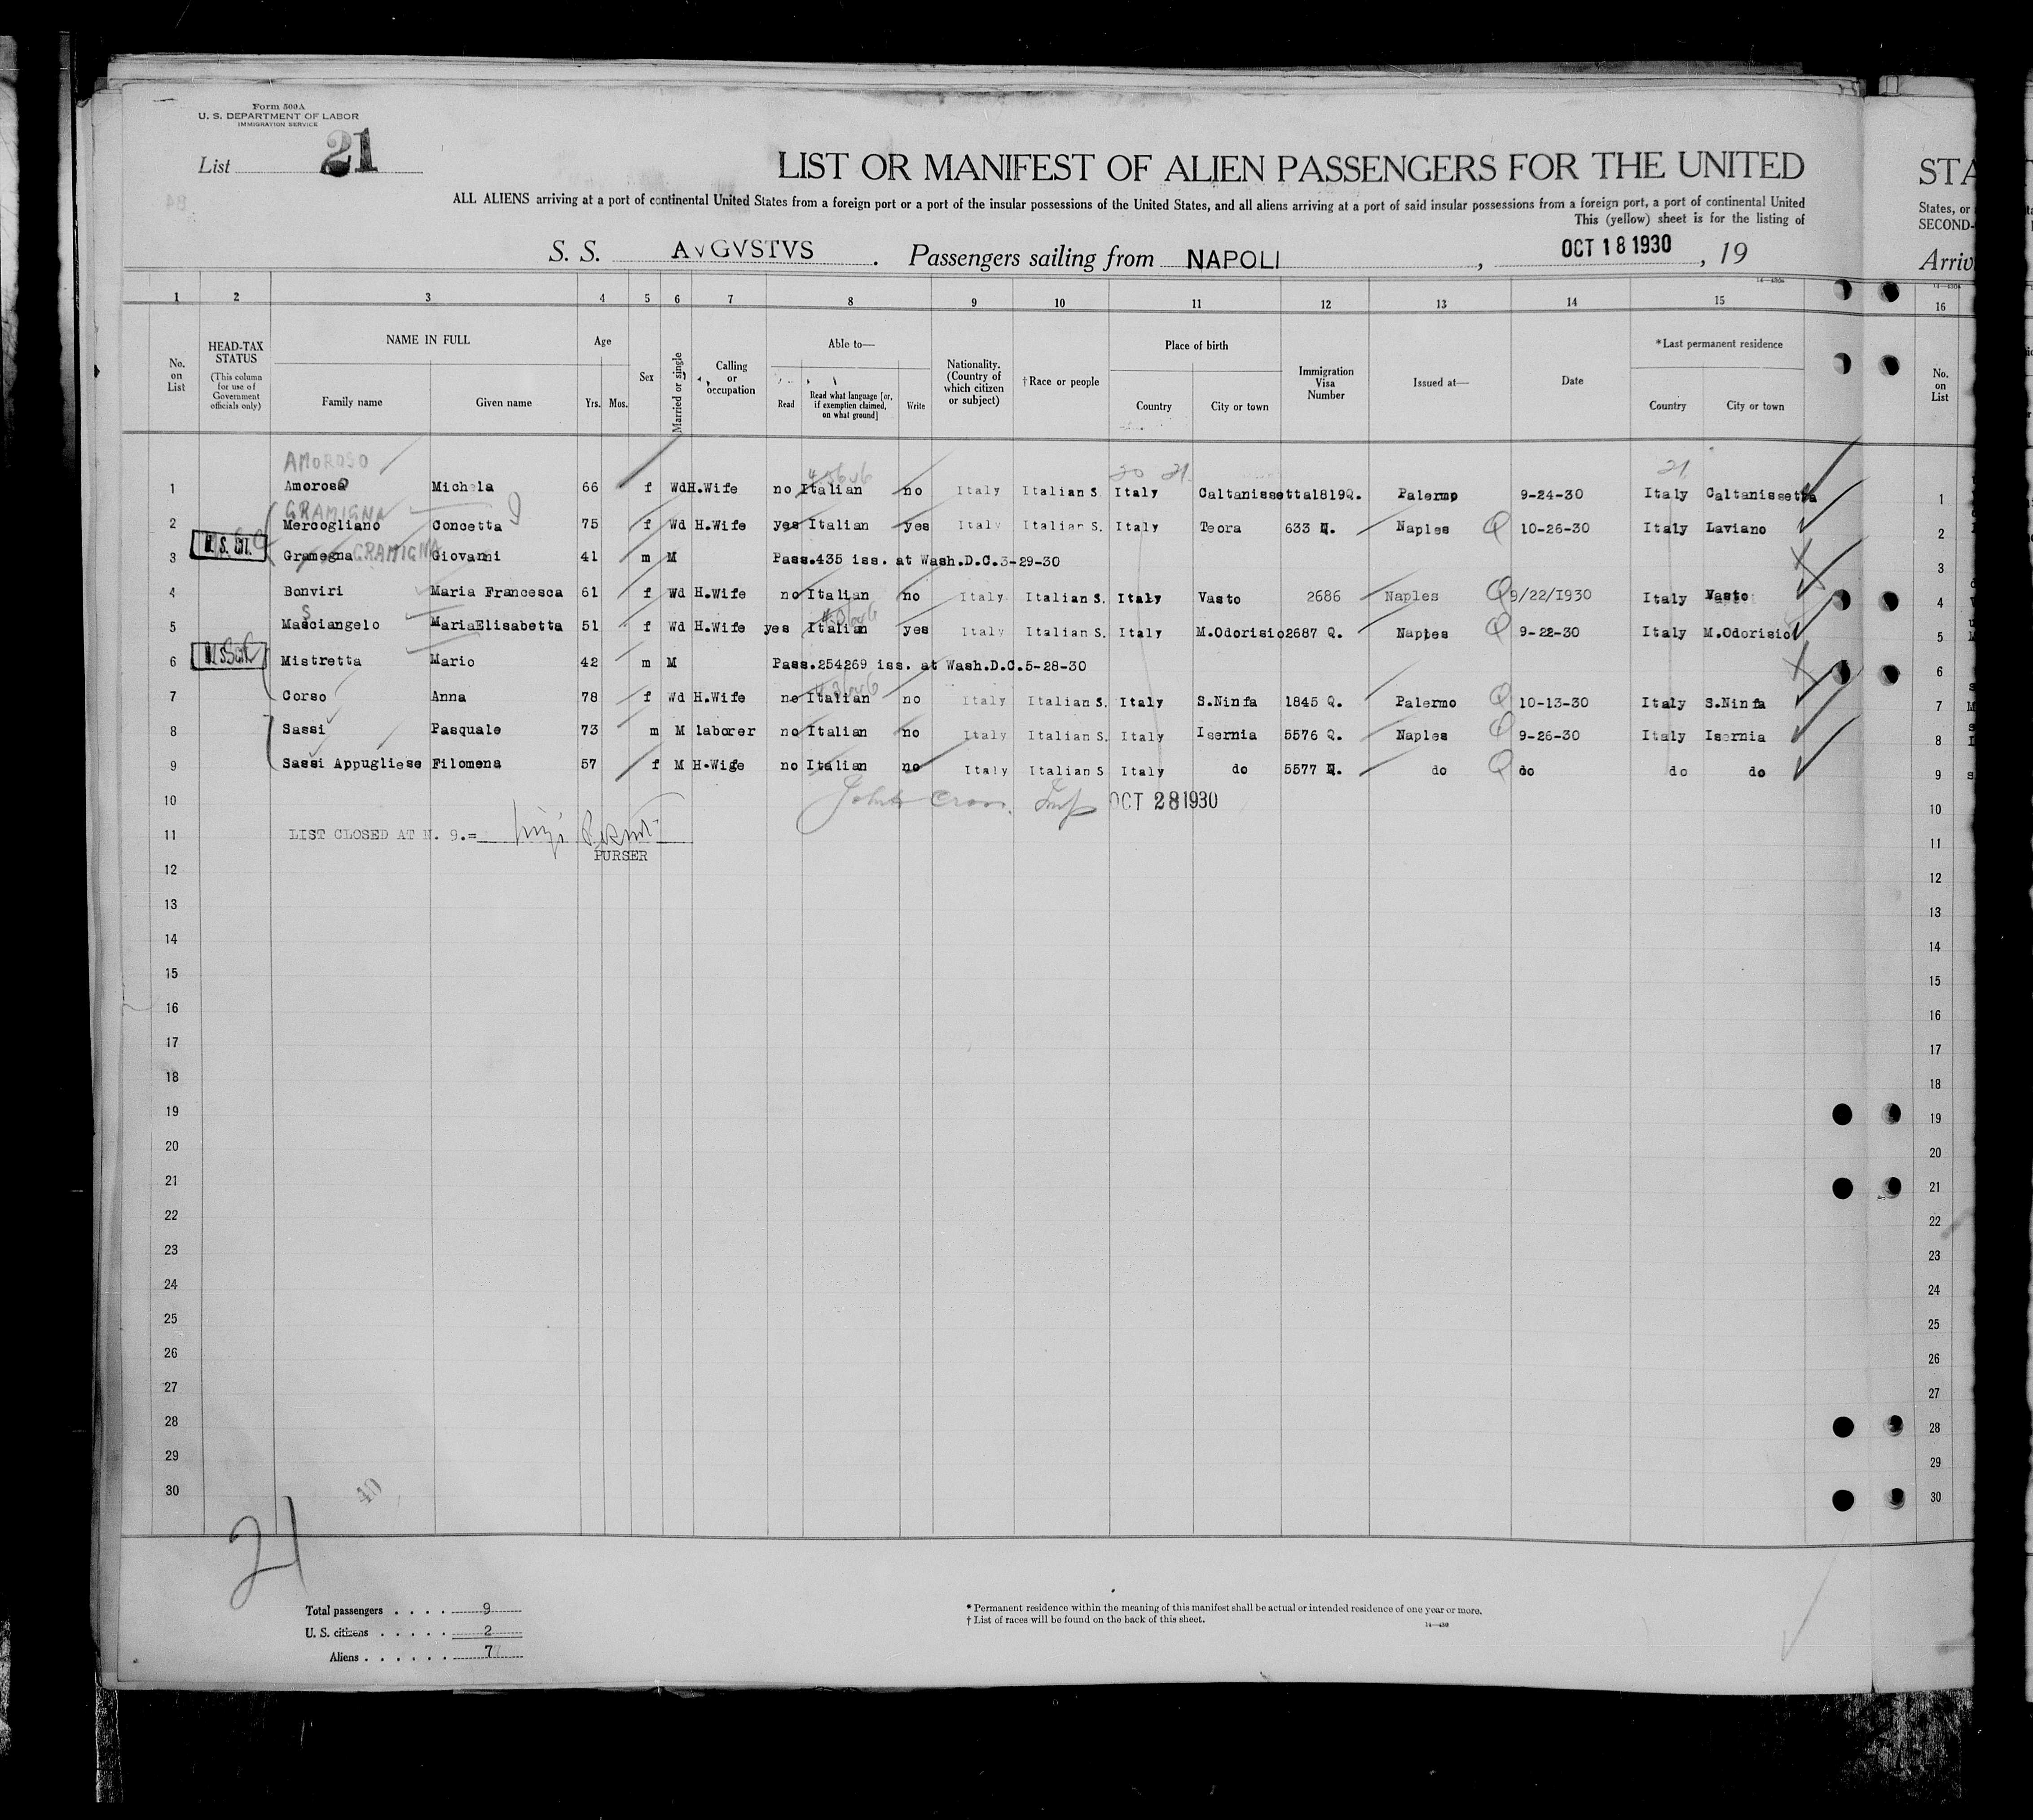 Form 500A
U. S. DEPARTMENT OF LABOR
IMMIGRATION SERVICE
List 21
LIST OR MANIFEST OF ALIEN PASSENGERS FOR THE UNITED
STA
ALL ALIENS arriving at a port of continental United States from a foreign port or a port of the insular possessions of the United States, and all aliens arriving at a port of said insular possessions from a foreign port, a port of continental United
States, or
This (yellow) sheet is for the listing of
SECOND-
S. S. AVGVSTVS . Passengers sailing from NAPOLI , OCT 18 1930 , 19
Arriv
1 2 3 4 5 6 7 8 9 10 11 12 13 14 15 16
No. on List
HEAD-TAX STATUS
(This column for use of Government officials only)
NAME IN FULL
Family name Given name
Age
Yrs. Mos.
Sex
Married or single
Calling or occupation
Able to—
Read
Read what language [or, if exemption claimed, on what ground]
Write
Nationality. (Country of which citizen or subject)
†Race or people
Place of birth
Country City or town
Immigration Visa Number
Issued at—
Date
*Last permanent residence
Country City or town
No. on List
AMOROSO
1 Amoroso Michela 66 f Wd H.Wife no Italian no Italy Italian S. Italy Caltanissetta 1819Q. Palermo 9-24-30 Italy Caltanissetta 1
GRAMIGNA
2 Mercogliano Concetta 75 f Wd H.Wife yes Italian yes Italy Italian S. Italy Teora 633 Naples Q 10-26-30 Italy Laviano 2
3 Gramegna GRAMIGNA Giovanni 41 m M Pass.435 iss. at Wash.D.C.3-29-30 3
4 Bonviri Maria Francesca 61 f Wd H.Wife no Italian no Italy Italian S. Italy Vasto 2686 Naples Q 9/22/I930 Italy Vasto 4
5 Masciangelo MariaElisabetta 51 f Wd H.Wife yes Italian yes Italy Italian S. Italy M.Odorisio 2687 Q. Naples Q 9-22-30 Italy M.Odorisio 5
6 Mistretta Mario 42 m M Pass.254269 iss. at Wash.D.C.5-28-30 6
7 Corso Anna 78 f Wd H.Wife no Italian no Italy Italian S. Italy S.Ninfa 1845 Q. Palermo Q 10-13-30 Italy S.Ninfa 7
8 Sassi Pasquale 73 m M laborer no Italian no Italy Italian S. Italy Isernia 5576 Q. Naples Q 9-26-30 Italy Isernia 8
9 Sassi Appugliese Filomena 57 f M H.Wige no Italian no Italy Italian S Italy do 5577 do Q do do do 9
10 OCT 28 1930 10
11 LIST CLOSED AT N. 9.= 11
PURSER
12 12
13 13
14 14
15 15
16 16
17 17
18 18
19 19
20 20
21 21
22 22
23 23
24 24
25 25
26 26
27 27
28 28
29 29
30 30
40
21
Total passengers . . . . 9
U. S. citizens . . . . . 2
Aliens . . . . . . 7
* Permanent residence within the meaning of this manifest shall be actual or intended residence of one year or more.
† List of races will be found on the back of this sheet.